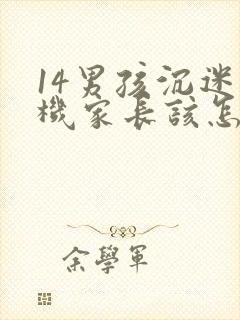 14男孩沉迷
機家長該怎
余學軍